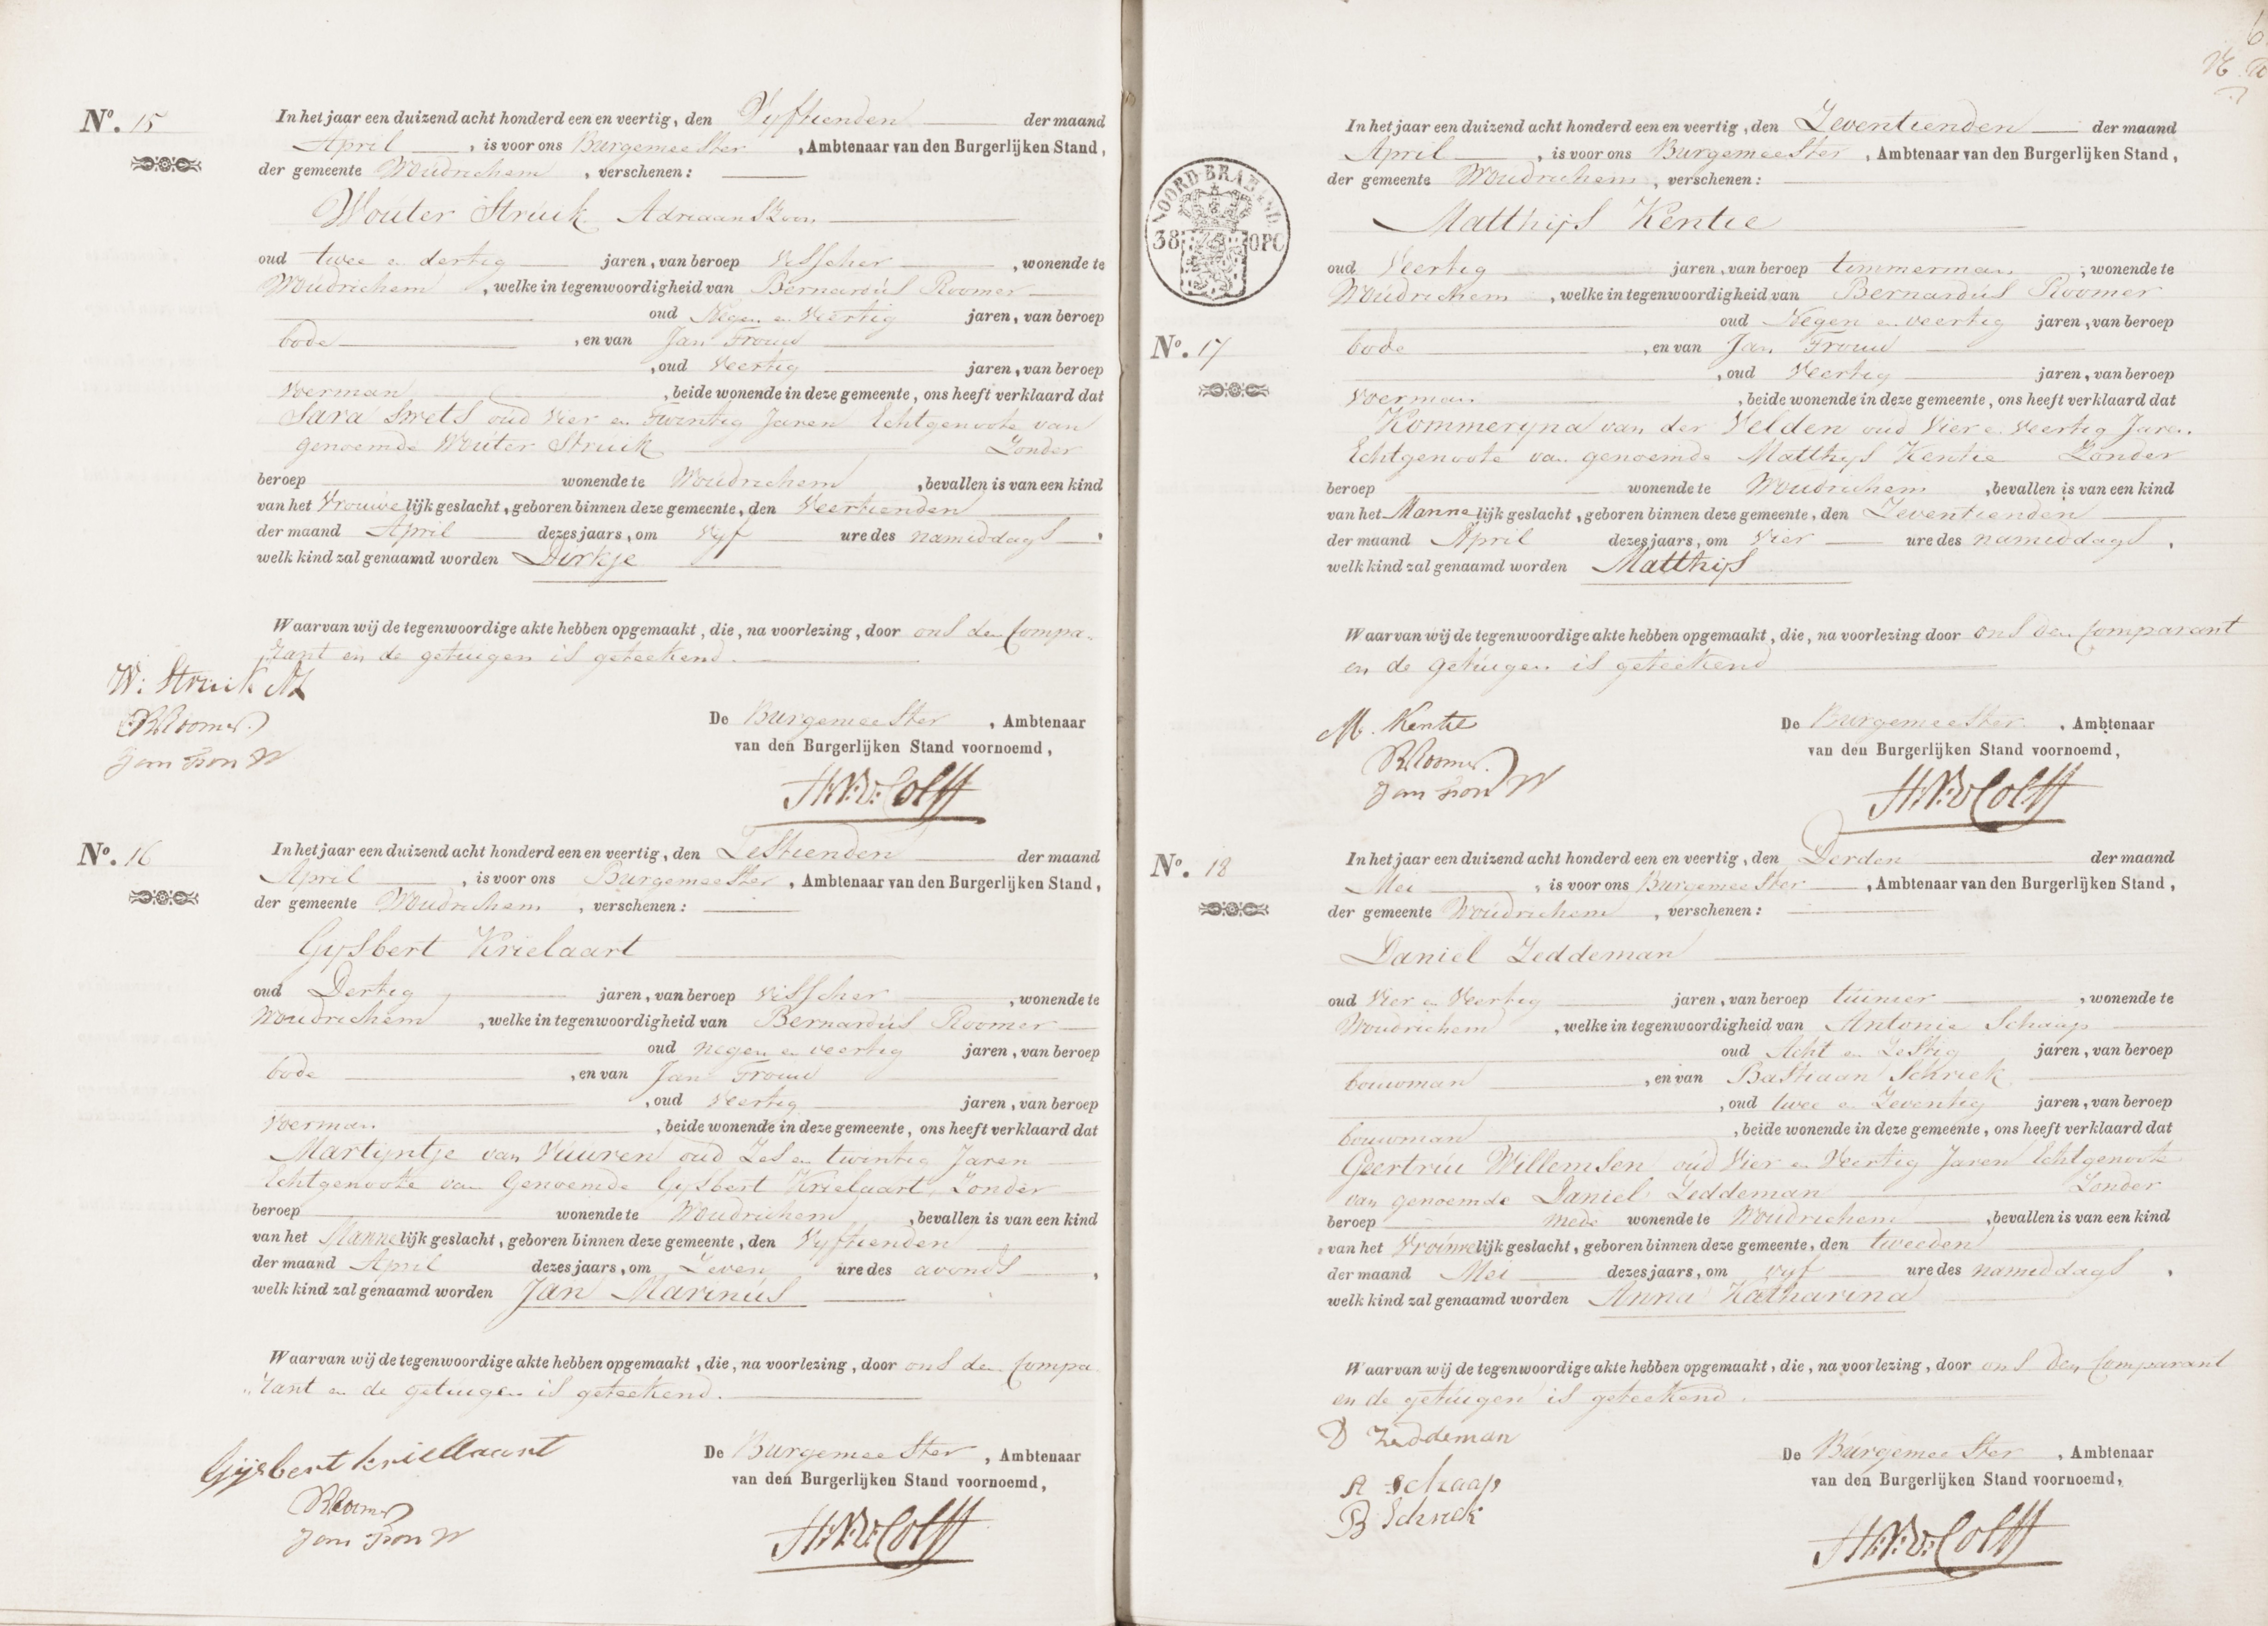 Nº. 15
In het jaar een duizend acht honderd een en veertig, den Vyftienden der maand
April, is voor ons Burgemeester, Ambtenaar van den Burgerlijken Stand,
der gemeente Woudrichem, verschenen:
Wouter Struik Adriaanszoon
oud twee en dertig jaren, van beroep Visscher, wonende te
Woudrichem, welke in tegenwoordigheid van Bernardus Roomer
oud Negen en Veertig jaren, van beroep
bode, en van Jan Trouw
, oud Veertig jaren, van beroep
Voerman, beide wonende in deze gemeente, ons heeft verklaard dat
Sara Swets oud Vier en Twintig Jaren Echtgenoote van
genoemde Wouter Struik Zonder
beroep wonende te Woudrichem, bevallen is van een kind
van het Vrouwelijk geslacht, geboren binnen deze gemeente, den Veertienden
der maand April dezes jaars, om Vyf ure des namiddags,
welk kind zal genaamd worden Dirkje
Waarvan wij de tegenwoordige akte hebben opgemaakt, die, na voorlezing, door ons den Compa-
rant en de getuigen is geteekend.
W: Struik AZ
BRoomer
Jan Tron W
De Burgemeester, Ambtenaar
van den Burgerlijken Stand voornoemd,
Nº. 16
In het jaar een duizend acht honderd een en veertig, den Zestienden der maand
April, is voor ons Burgemeester, Ambtenaar van den Burgerlijken Stand,
der gemeente Woudrichem, verschenen:
Gysbert Krielaart
oud Dertig jaren, van beroep Visscher, wonende te
Woudrichem, welke in tegenwoordigheid van Bernardus Roomer
oud negen en veertig jaren, van beroep
bode, en van Jan Trouw
, oud Veertig jaren, van beroep
Voerman, beide wonende in deze gemeente, ons heeft verklaard dat
Martijntje van Vuuren oud Zes en twintig Jaren
Echtgenoote van Genoemde Gysbert Krielaart, Zonder
beroep wonende te Woudrichem, bevallen is van een kind
van het Mannelijk geslacht, geboren binnen deze gemeente, den Vyftienden
der maand April dezes jaars, om Zeven ure des avonds,
welk kind zal genaamd worden Jan Marinus
Waarvan wij de tegenwoordige akte hebben opgemaakt, die, na voorlezing, door ons den Compa
rant en de getuigen is geteekend.
Gijsbert kriellaart
BRoomer
Jan Tron W
De Burgemeester, Ambtenaar
van den Burgerlijken Stand voornoemd,
6
NOORD-BRABAND
38 OPC
Nº. 17
In het jaar een duizend acht honderd een en veertig, den Zeventienden der maand
April, is voor ons Burgemeester, Ambtenaar van den Burgerlijken Stand,
der gemeente Woudrichem, verschenen:
Matthijs Kentie
oud Veertig jaren, van beroep timmerman, wonende te
Woudrichem, welke in tegenwoordigheid van Bernardus Roomer
oud Negen en veertig jaren, van beroep
bode, en van Jan Trouw
, oud Veertig jaren, van beroep
Voerman, beide wonende in deze gemeente, ons heeft verklaard dat
Kommeryna van der Velden oud Vier en Veertig Jaren
Echtgenoote van genoemde Matthijs Kentie Zonder
beroep wonende te Woudrichem, bevallen is van een kind
van het Mannelijk geslacht, geboren binnen deze gemeente, den Zeventienden
der maand April dezes jaars, om Vier ure des namiddags,
welk kind zal genaamd worden Matthijs
Waarvan wij de tegenwoordige akte hebben opgemaakt, die, na voorlezing door ons den Comparant
en de getuigen is geteekend
M. Kentie
BRoomer
Jan Tron W
De Burgemeester, Ambtenaar
van den Burgerlijken Stand voornoemd,
Nº. 18
In het jaar een duizend acht honderd een en veertig, den Derden der maand
Mei, is voor ons Burgemeester, Ambtenaar van den Burgerlijken Stand,
der gemeente Woudrichem, verschenen:
Daniel Zeddeman
oud Vier en Veertig jaren, van beroep tuinier, wonende te
Woudrichem, welke in tegenwoordigheid van Antonie Schaap
oud Acht en Zestig jaren, van beroep
bouwman, en van Bastiaan Schriek
, oud twee en Zeventig jaren, van beroep
bouwman, beide wonende in deze gemeente, ons heeft verklaard dat
Geertrui Willemsen oud Vier en Veertig Jaren Echtgenoote
van genoemde Daniel Zeddeman Zonder
beroep mede wonende te Woudrichem, bevallen is van een kind
van het Vrouwelijk geslacht, geboren binnen deze gemeente, den tweeden
der maand Mei dezes jaars, om vyf ure des namiddags,
welk kind zal genaamd worden Anna Katharina
Waarvan wij de tegenwoordige akte hebben opgemaakt, die, na voorlezing, door ons den Comparant
en de getuigen is geteekend.
D Zeddeman
A Schaap
B Schriek
De Burgemeester, Ambtenaar
van den Burgerlijken Stand voornoemd,